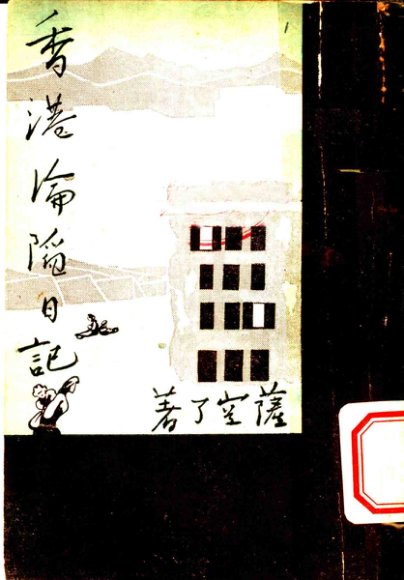 香港淪陷日記
薩空了著
1